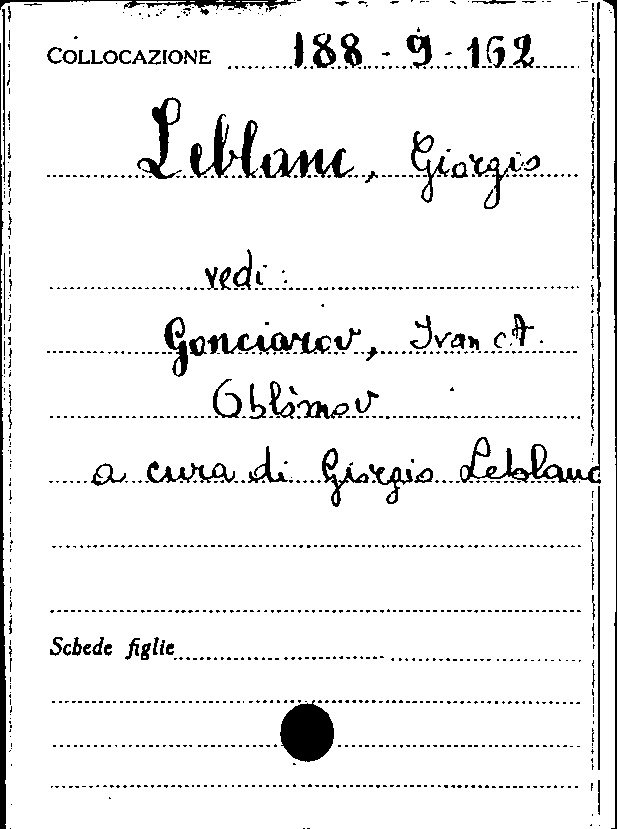 COLLOCAZIONE 188 - 9 - 162
Leblanc, Giorgio
vedi:
Gonciarov, Ivan A.
Oblòmov
a cura di Giorgio Leblanc
Schede figlie